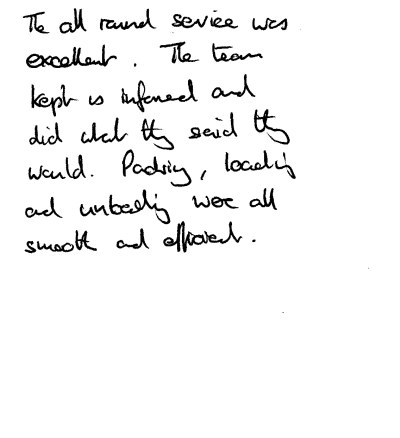 The all round service was
excellent. The team
kept us informed and
did what they said they
would. Packing, loading
and unloading were all
smooth and efficient.